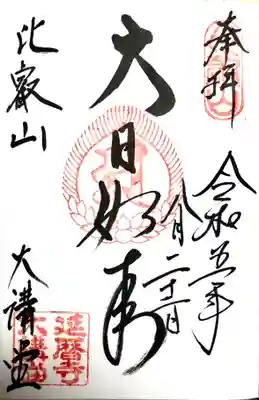 奉拝
令和五年
八月二十一日
大日如来
比叡山
大講堂
延暦寺
大講堂